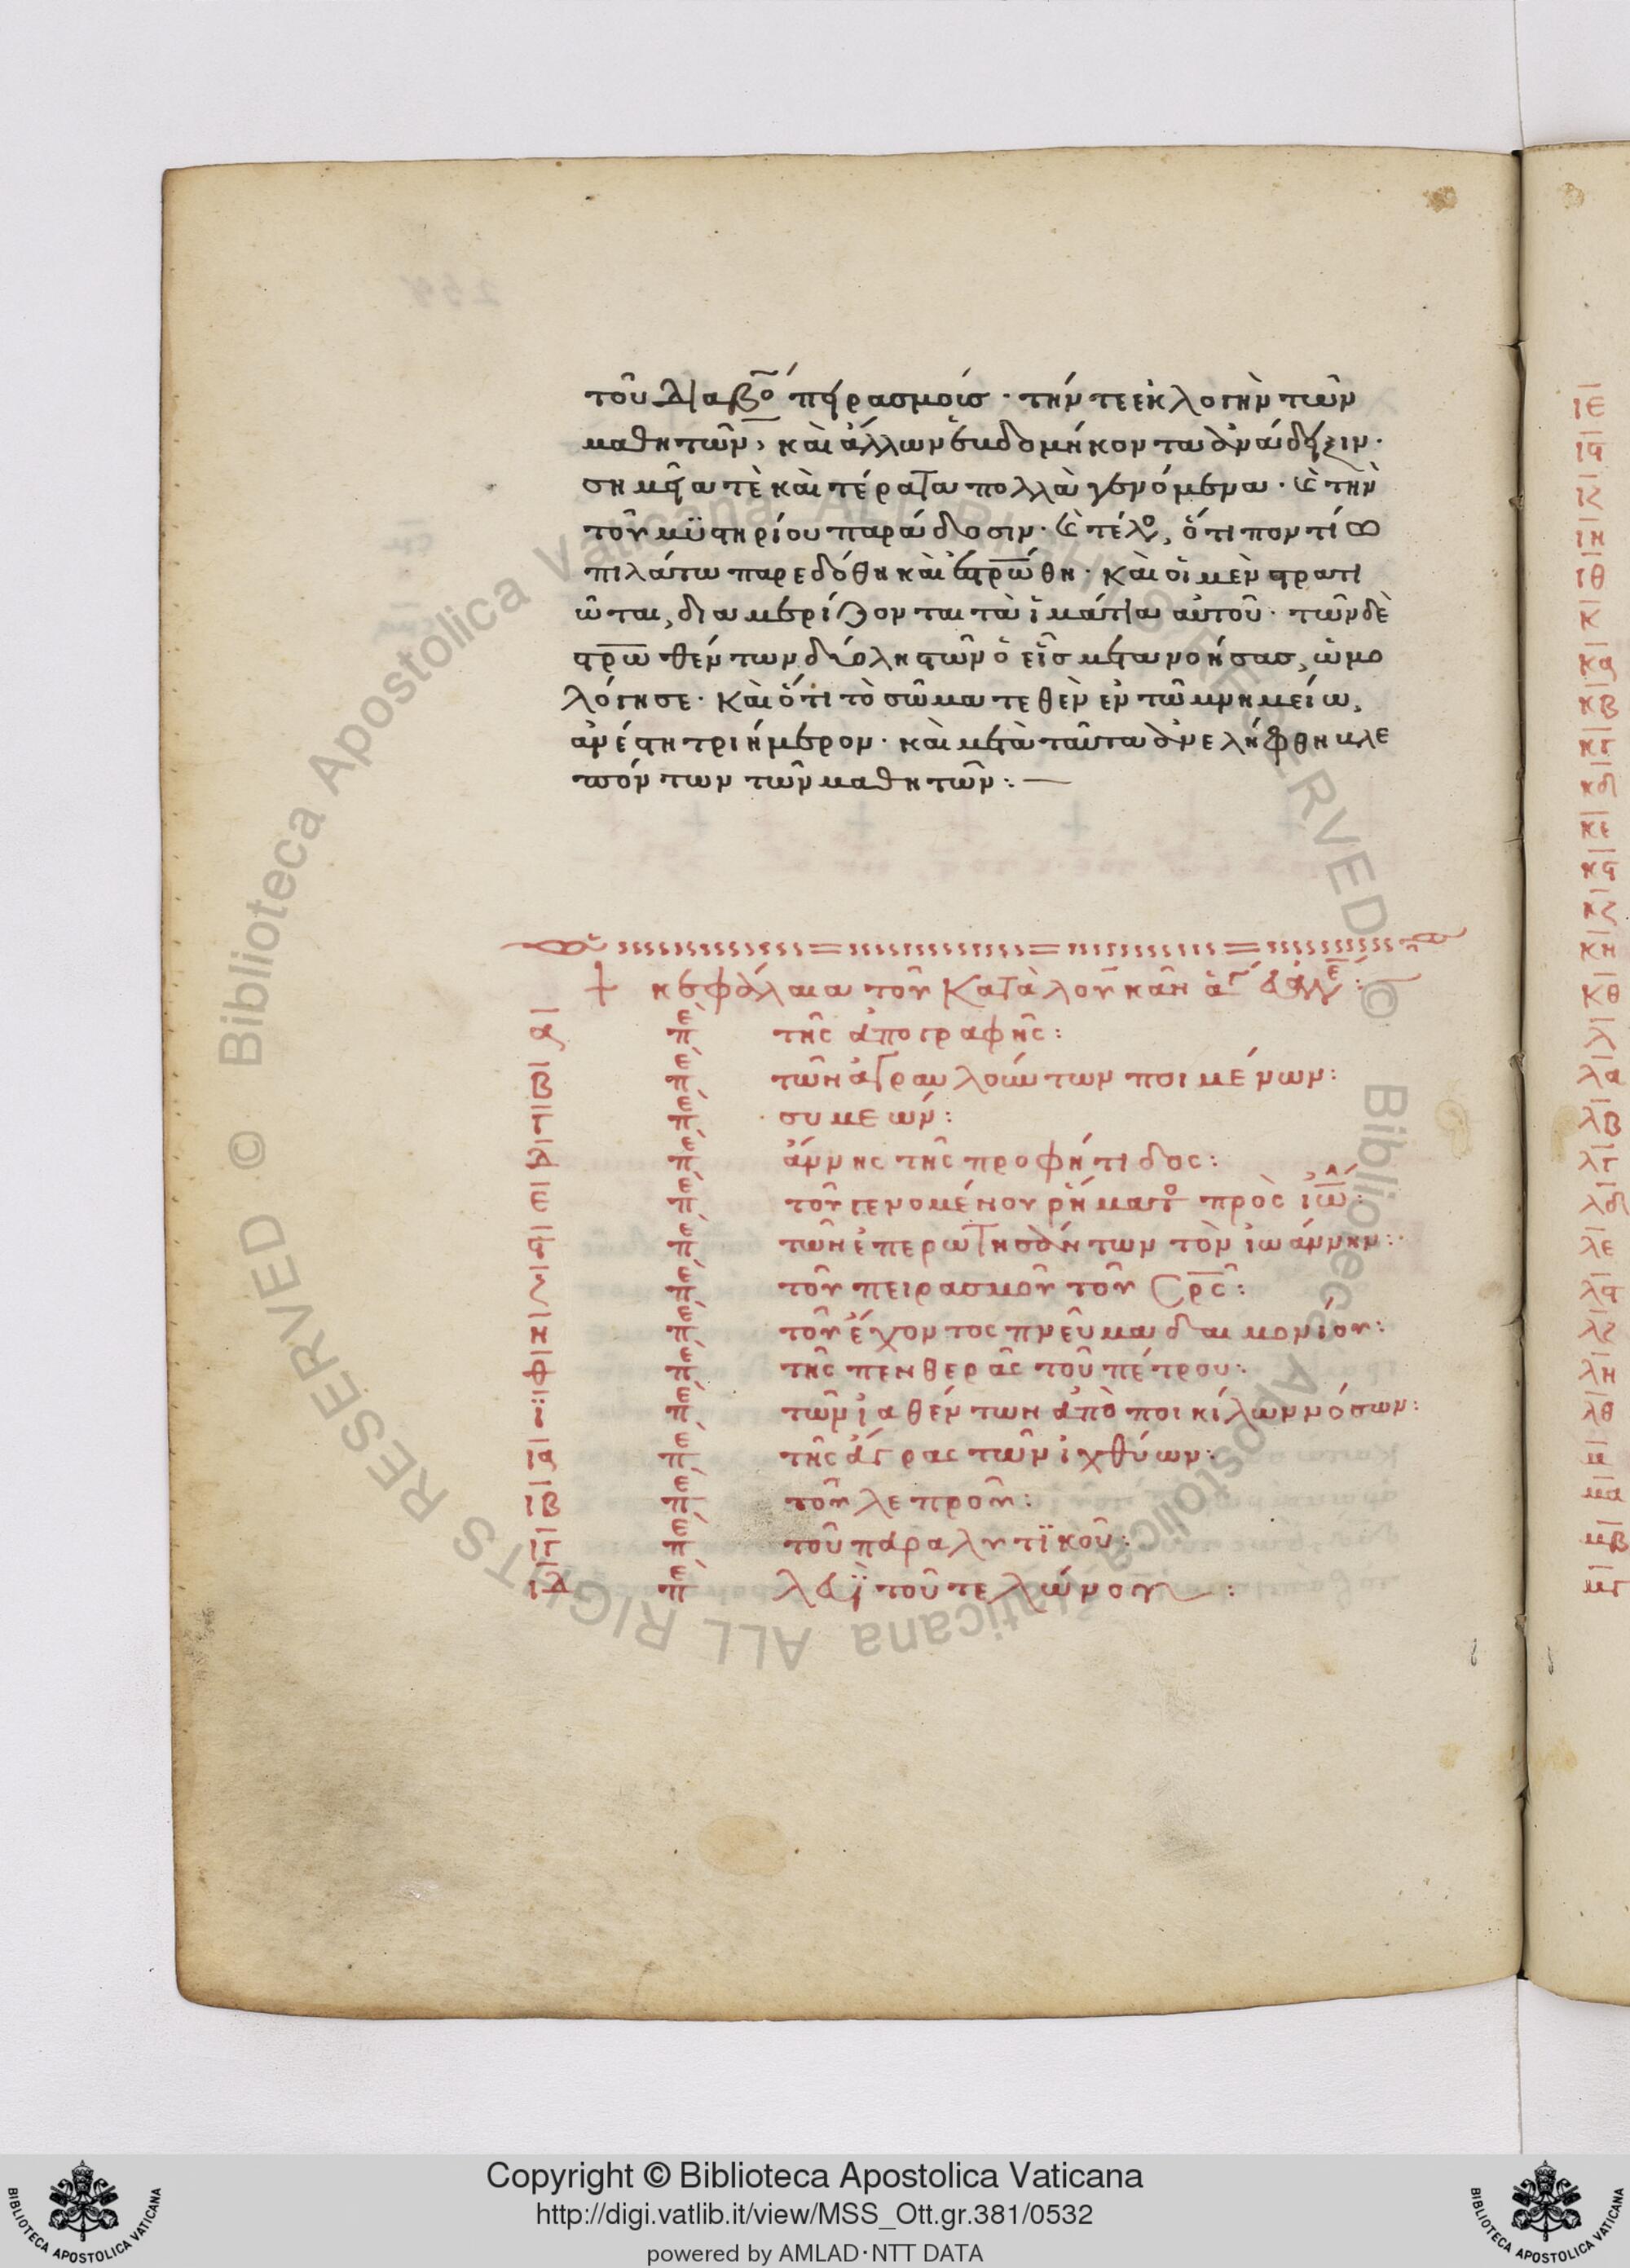 τοῦ διαβό πειρασμοίς · τήν τε ἐκλογὴν τῶν
μαθητῶν, καὶ ἄλλων ἑβδομήκοντα ἀνάδειξιν ·
σημεῖα τὲ καὶ τέρατα πολλὰ γενόμενα · καὶ τὴν
τοῦ μϋστηρίου παράδοσιν · καὶ τέλος, ὅτι ποντίω
πιλάτω παρεδόθη καὶ ἐστρώθη · καὶ οἱ μὲν στρατι
ῶται, διαμερίζονται τὰ ἱμάτια αὐτοῦ · τῶν δὲ
στρωθέντων δύο ληστῶν ὁ εἷς μετανοήσας, ὡμο
λόγησε · καὶ ὅτι τὸ σῶμα τεθὲν ἐν τῶ μνημείω,
ἀνέστη τριήμερον · καὶ μετὰ ταῦτα ἀνελήφθη βλε
πόντων τῶν μαθητῶν : —
+ κεφάλαια τοῦ κατὰ λουκᾶν ἁγ εὐαγγε :
α πε τῆς ἀπογραφῆς :
β πε τῶν ἀγραυλούντων ποιμένων :
γ πε συμεών :
δ πε ἄννης τῆς προφήτιδος :
ε πε τοῦ γενομένου ῥήματος πρὸς ἰωα :
ϛ πε τῶν ἐπερωτησάντων τὸν ἰωάννην :
ζ πε τοῦ πειρασμοῦ τοῦ σρς :
η πε τοῦ ἔχοντος πνεῦμα δαιμονίου :
θ πε τῆς πενθερᾶς τοῦ πέτρου :
ι πε τῶν ἰαθέντων ἀπὸ ποικίλων νόσων :
ια πε τῆς ἄγρας τῶν ἰχθύων :
ιβ πε τοῦ λεπροῦ :
ιγ πε τοῦ παραλυτϊκοῦ :
ιδ πε λευῒ τοῦ τελώνου :
ιε
ιϛ
ιζ
ιη
ιθ
κ
κα
κβ
κγ
κδ
κε
κϛ
κζ
κη
κθ
λ
λα
λβ
λγ
λδ
λε
λϛ
λζ
λη
λθ
μ
μα
μβ
μγ
Biblioteca Apostolica Vaticana ALL RIGHTS RESERVED ©
Biblioteca Apostolica Vaticana ALL RIGHTS RESERVED ©
Copyright © Biblioteca Apostolica Vaticana
http://digi.vatlib.it/view/MSS_Ott.gr.381/0532
powered by AMLAD·NTT DATA
BIBLIOTECA APOSTOLICA VATICANA
BIBLIOTECA APOSTOLICA VATICANA